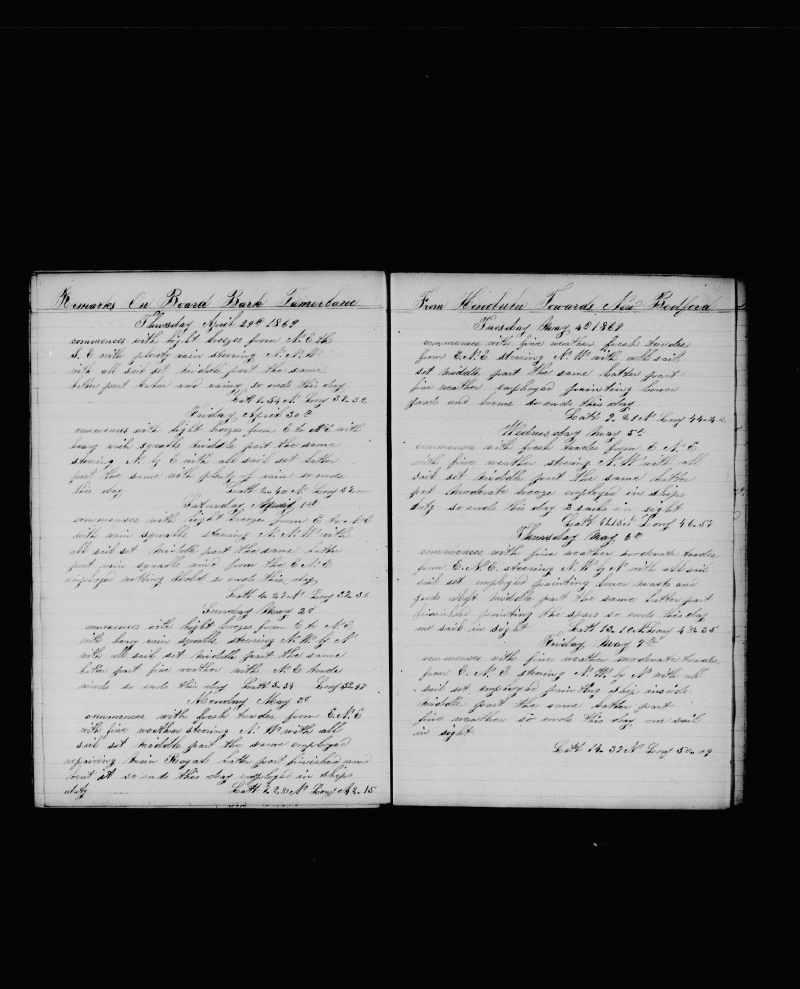 Remarks On Board Bark Tamerlane
Thursday April 29th 1869
commences with light breezes from N.E. to
S.E with plenty rain steering N.N.W
with all sail set middle part the same
latter part calm and rainy so ends this day
Latt 1.54 N Long 38-32
Friday April 30th
commences with light breezes from E to NE with
heavy rain squalls middle part the same
steering N. by E with all sail set latter
part the same with plenty of rain so ends
this day Latt 2-40 N Long 37
Saturday May 1st
commences with light breezes from E to N.E
with rain squalls steering N.N.W with
all sail set middle part the same latter
part rain squalls wind from the E.N.E
employed nothing so ends this day
Latt 4-27 N Long 38-36
Sunday May 2d
commences with light breezes from E to N.E.
with heavy rain squalls steering N.W. by N
with all sail set middle part the same
latter part fine weather with N.E trade
winds so ends this day Latt 5-34 Long 39-47
Monday May 3d
commences with fresh trades from E.N.E
with fine weather steering N.W with all
sail set middle part the same employed
repairing main Royal latt part finished and
bent it so ends this day employed in ships
duty Latt 7.28 N Long 42-15
From Honolulu Towards New Bedford
Tuesday May 4th 1869
commences with fine weather fresh trades
from E.N.E steering N.W with all sail
set middle part the same latter part
fine weather employed painting lower
yards and booms so ends this day
Latt 9.21 N Long 44-4
Wednesday May 5th
commences with fresh trades from E.N.E
with fine weather steering N.W with all
sail set middle part the same latter
part moderate breeze employed in ships
duty so ends this day 2 sails in sight
Latt Long 46.57
Thursday May 6th
commences with fine weather moderate trades
from E.N.E. steering N.W. by N with all sail
sail set employed painting lower masts and
yards aloft middle part the same latter part
finished painting the spars so ends this day
one sail in sight Latt 13.10 N Long 48-35
Friday May 7th
commences with fine weather moderate trades
from E.N.E steering N.W. by N with all
sail set employed painting ship inside
middle part the same latter part
fine weather so ends this day one sail
in sight
Latt 14-37 N Long 50-09